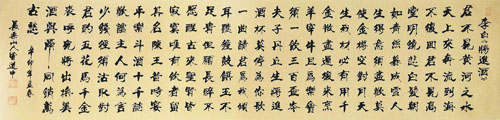 李白《將進酒》
君不見黃河之水
天上來奔流到海
不復回君不見高
堂明鏡悲白髮朝
如青絲暮成雪人
生得意須盡歡莫
使金樽空對月天
生我材必有用千
金散盡還復來烹
羊宰牛且為樂會
須一飲三百杯岑
夫子丹丘生將進
酒杯莫停為你歌
一曲請君為我傾
耳聽鐘鼓饌玉不
足貴但願長醉不
願醒古來聖賢皆
寂寞惟有飲者留
其名陳王昔時宴
平樂斗酒十千恣
歡謔主人何為言
少錢徑須沽取對
君酌五花馬千金
裘呼兒將出換美
酒與爾同銷萬
古愁 辛卯年孟春
山人 道中